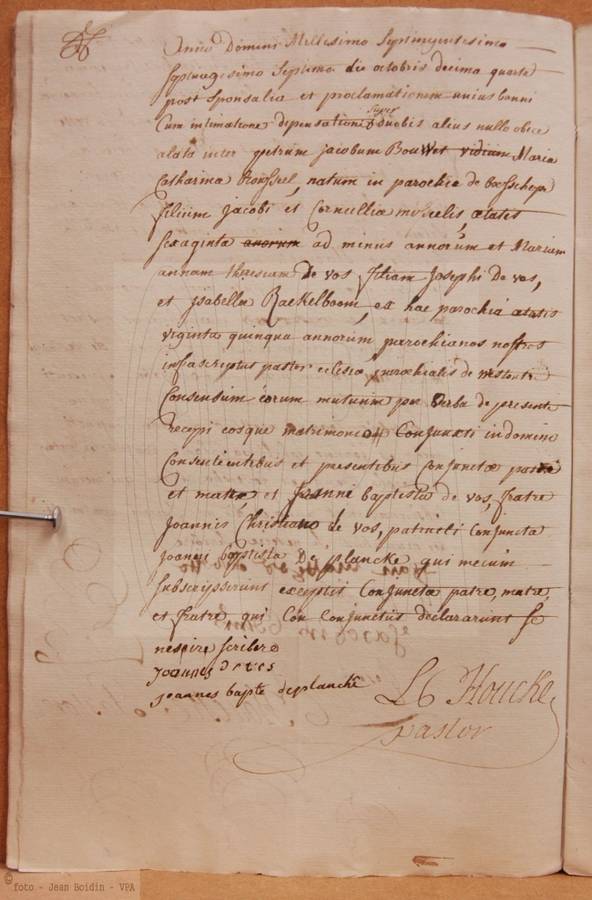 Anno Domini Millesimo Septingentesimo
septuagesimo septimo die octobris decima quarte
post sponsalia et proclamationem unius banni
super
Cum intimatione dispensationis duobis alius nullo obice
alata inter petrum jacobum Bouwet viduum Maria
Catharina Roussel, natum in parochia de boesschepe
filium jacobi et Cornellia ætatis
sexaginta anorum ad minus annorum et Mariam
annam theresiam De vos filiam Josephi De vos,
et jsabella Raekelboom, ex hac parochia ætatis
viginta quinque annorum parochianos nostros
infrascriptus pastor eclesia parochialis de westoutre
Consensum eorum mutuum per verba de presente
recepi eosque matrimonio Conjunxti in domino
Consentientibus et presentibus Conjunctæ patre
et matre et joanne baptista de vos, fratre
joannis Christiano de vos, patrueli Conjuncta
joanni baptista De plancke qui mecum
subscripserunt exceptis Conjuncta patre, matre
et fratre qui Con Conjunctus declararunt se
nescire scribere
joannes devos
joannes bapte deplancke
L C Houcke
pastor
© foto - Jean Boidin - VPA